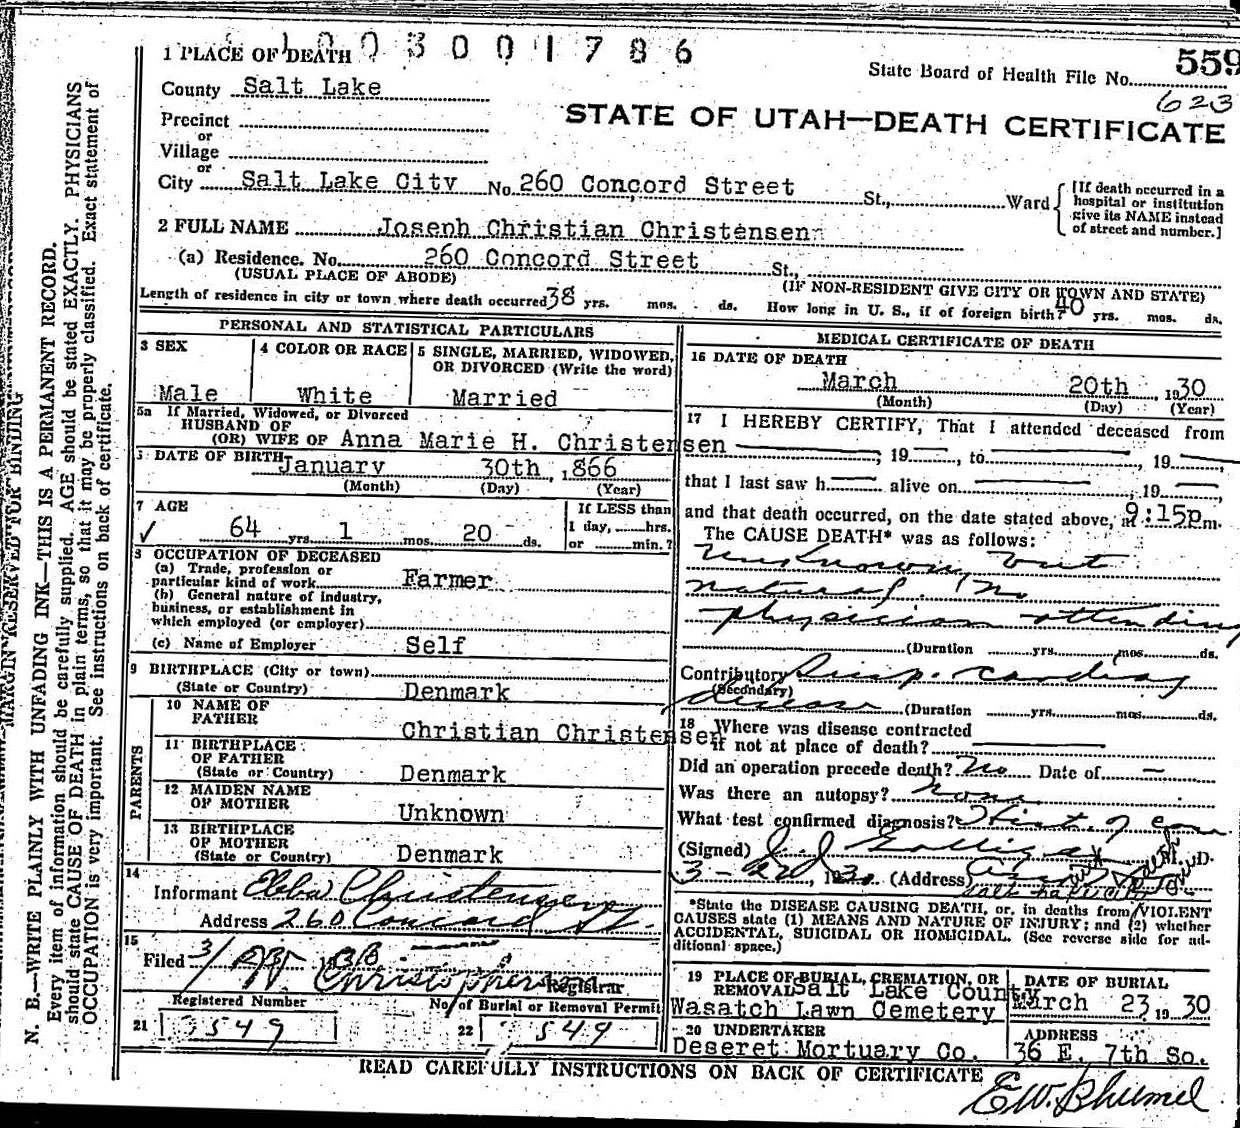 1003001786
1 PLACE OF DEATH
State Board of Health File No. 559
623
County Salt Lake
STATE OF UTAH—DEATH CERTIFICATE
Precinct
or
Village
or
City Salt Lake City No. 260 Concord Street St., Ward
[If death occurred in a
hospital or institution
give its NAME instead
of street and number.]
2 FULL NAME Joseph Christian Christensen
(a) Residence. No. 260 Concord Street St.,
(USUAL PLACE OF ABODE) (IF NON-RESIDENT GIVE CITY OR TOWN AND STATE)
Length of residence in city or town where death occurred 38 yrs. mos. ds. How long in U. S., if of foreign birth? 40 yrs. mos. ds.
PERSONAL AND STATISTICAL PARTICULARS
3 SEX
Male
4 COLOR OR RACE
White
5 SINGLE, MARRIED, WIDOWED,
OR DIVORCED (Write the word)
Married
5a If Married, Widowed, or Divorced
HUSBAND OF
(OR) WIFE OF Anna Marie H. Christensen
DATE OF BIRTH January 30th, 1866
(Month) (Day) (Year)
7 AGE
64 yrs. 1 mos. 20 ds.
If LESS than
1 day, hrs.
or min.?
8 OCCUPATION OF DECEASED
(a) Trade, profession or
particular kind of work Farmer
(b) General nature of industry,
business, or establishment in
which employed (or employer)
(c) Name of Employer Self
9 BIRTHPLACE (City or town)
(State or Country) Denmark
PARENTS
10 NAME OF
FATHER Christian Christensen
11 BIRTHPLACE
OF FATHER
(State or Country) Denmark
12 MAIDEN NAME
OF MOTHER Unknown
13 BIRTHPLACE
OF MOTHER
(State or Country) Denmark
14
Informant Ebba Christensen
Address 260 Concord St.
15
Filed 3/
Registrar
Registered Number
21 549
No. of Burial or Removal Permit
22 549
MEDICAL CERTIFICATE OF DEATH
16 DATE OF DEATH
March 20th, 1930
(Month) (Day) (Year)
17 I HEREBY CERTIFY, That I attended deceased from
, 19 , to , 19 ,
that I last saw h alive on , 19 ,
and that death occurred, on the date stated above, at 9:15p m.
The CAUSE DEATH* was as follows:
Unknown but
natural. No
physician attending
(Duration yrs. mos. ds.
Contributory Supp. cardiac
(Secondary)
disease (Duration yrs. mos. ds.
18 Where was disease contracted
if not at place of death?
Did an operation precede death? No Date of —
Was there an autopsy? None
What test confirmed diagnosis? Hist. of case
(Signed) M. D.
3- 1930 (Address)
*State the DISEASE CAUSING DEATH, or, in deaths from VIOLENT
CAUSES state (1) MEANS AND NATURE OF INJURY; and (2) whether
ACCIDENTAL, SUICIDAL OR HOMICIDAL. (See reverse side for ad-
ditional space.)
19 PLACE OF BURIAL, CREMATION, OR
REMOVAL Salt Lake County
Wasatch Lawn Cemetery
DATE OF BURIAL
March 23, 1930
20 UNDERTAKER
Deseret Mortuary Co.
ADDRESS
36 E. 7th So.
READ CAREFULLY INSTRUCTIONS ON BACK OF CERTIFICATE
MARGIN RESERVED FOR BINDING
N. B.—WRITE PLAINLY WITH UNFADING INK—THIS IS A PERMANENT RECORD.
Every item of information should be carefully supplied. AGE should be stated EXACTLY. PHYSICIANS
should state CAUSE OF DEATH in plain terms, so that it may be properly classified. Exact statement of
OCCUPATION is very important. See instructions on back of certificate.